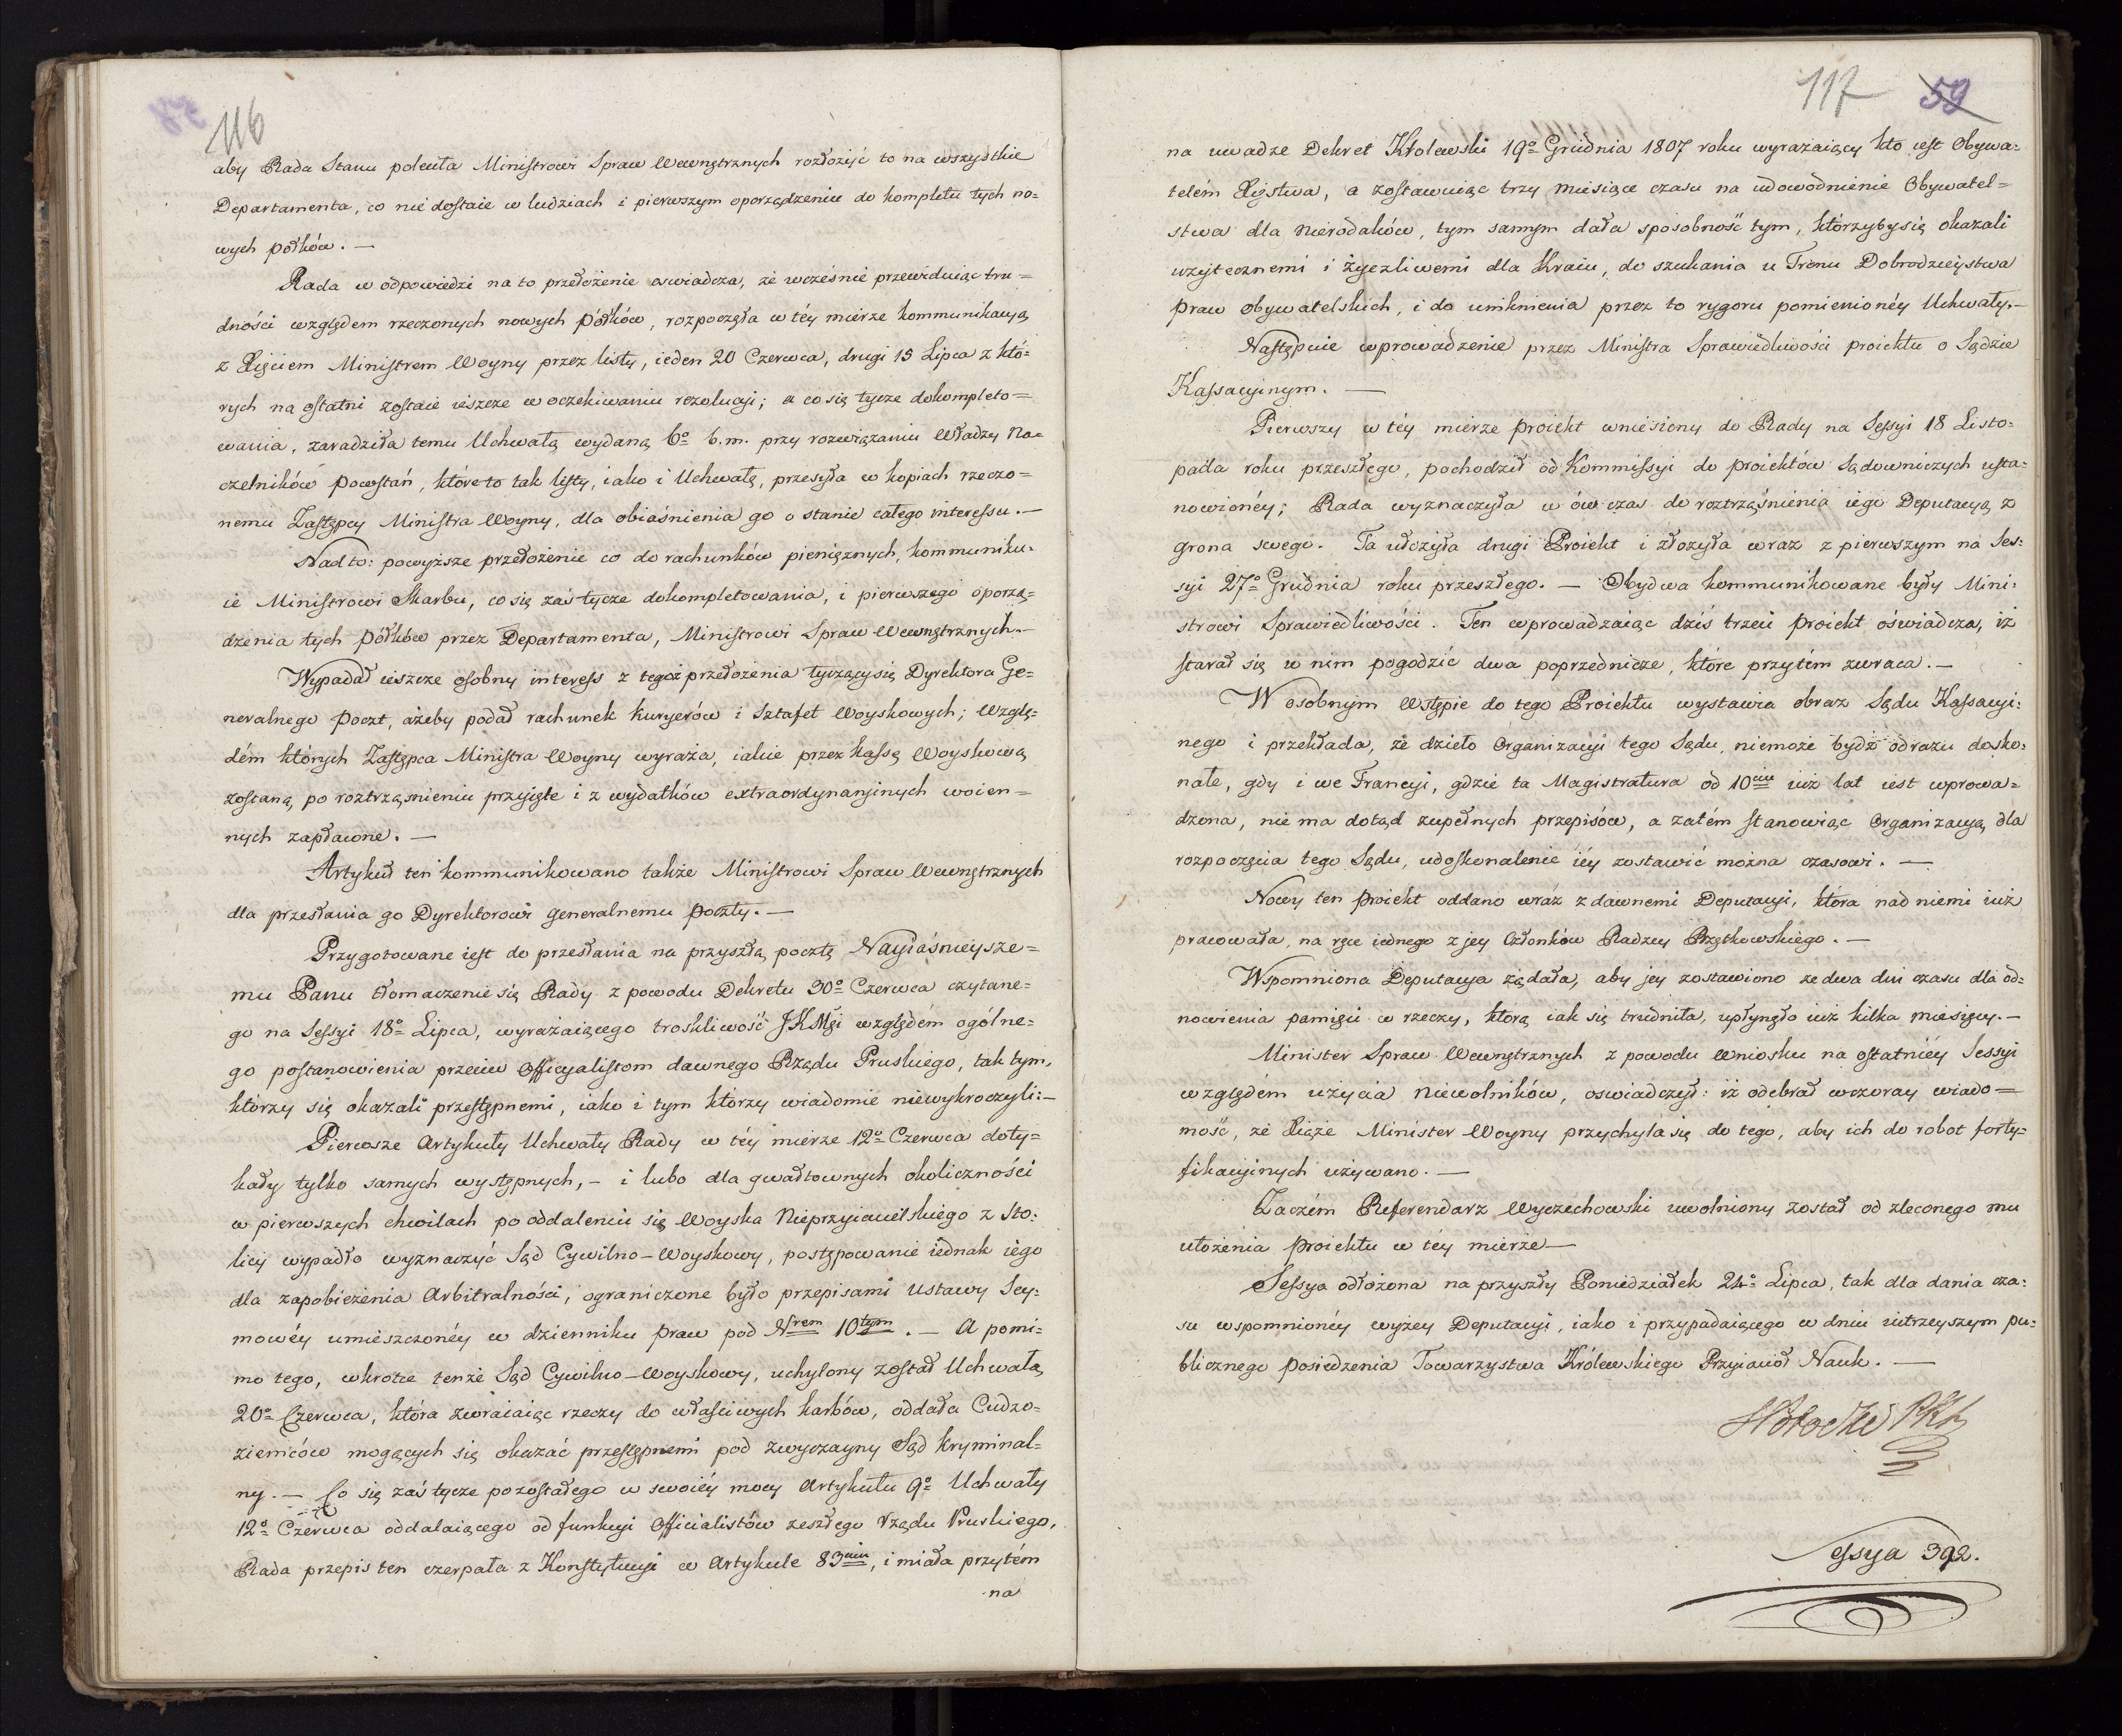 116
aby Rada Stanu poleciła Ministrowi Spraw Wewnętrznych rozłożyć to na wszystkie
Departamenta, co nie dostaie w ludziach i pierwszym oporządzeniu do kompletu tych no=
wych półków. —
Rada w odpowiedzi na to przełożenie oswiadcza, że wcześnie przewiduiąc tru=
dności względem rzeczonych nowych półków, rozpoczęła w téy mierze kommunikacyą
z Xięciem Ministrem Woyny przez listy, ieden 20 Czerwca, drugi 15 Lipca z któ=
rych na ostatni zostaie ieszcze w oczekiwaniu rezolucyi; a co się tycze dokompleto=
wania, zaradziła temu Uchwałą wydaną 6º b.m. przy rozwiązaniu Władzy Na=
czelników Powstań, które to tak listy, iako i Uchwałę, przesyła w kopiach rzeczo=
nemu Zastępcy Ministra Woyny, dla obiaśnienia go o stanie całego interessu. —
Nadto: powyższe przełożenie co do rachunków pieniężnych, kommuniku=
ie Ministrowi Skarbu, co się zaś tycze dokompletowania, i pierwszego oporzą=
dzenia tych półków przez Departamenta, Ministrowi Spraw Wewnętrznych. —
Wypadał ieszcze osobny interess z tegoż przełożenia tyczący się Dyrektora Ge=
neralnego Poczt, ażeby podał rachunek Kuryerów i Sztafet Woyskowych; Wzglę=
dém których Zastępca Ministra Woyny wyraża, iakie przez kassę Woyskową
zostaną, po roztrząsnieniu przyięte i z wydatków extraordynaryinych woien=
nych zapłacone. —
Artykuł ten kommunikowano także Ministrowi Spraw Wewnętrznych
dla przesłania go Dyrektorowi generalnemu poczty. —
Przygotowane iest do przesłania na przyszłą pocztę Nayiaśnieysze=
mu Panu tłomaczenie się Rady z powodu Dekretu 30º Czerwca czytane=
go na Sessyi 18º Lipca, wyrażaiącego troskliwość JKMci względem ogólne=
go postanowienia przeciw Officyalistom dawnego Rządu Pruskiego, tak tym,
którzy się okazali przestępnemi, iako i tym którzy wiadomie niewykroczyli: —
Pierwsze Artykuły Uchwały Rady w téy mierze 12º Czerwca doty=
kały tylko samych występnych, – i lubo dla gwałtownych okoliczności
w pierwszych chwilach po oddaleniu się Woyska Nieprzyiacielskiego z Sto=
licy wypadło wyznaczyć Sąd Cywilno-Woyskowy, postępowanie iednak iego
dla zapobieżenia Arbitralności, ograniczone było przepisami Ustawy Sey=
mowéy umieszczonéy w dzienniku praw pod Nrem 10tym. — A pomi=
mo tego, wkrotce tenże Sąd Cywilno-Woyskowy, uchylony został Uchwałą
20º Czerwca, która zwracaiąc rzeczy do właściwych karbów, oddała Cudzo=
ziemców mogących się okazać przestępnemi pod zwyczayny Sąd kryminal=
ny. — Co się zaś tycze pozostałego w swoiéy mocy Artykułu 9º Uchwały
12º Czerwca oddalaiącego od funkcyi Officialistów zeszłego Rządu Pruskiego,
Rada przepis ten czerpała z Konstytucyi w Artykule 83cim, i miała przytém
na
117 59
na uwadze Dekret Królewski 19º Grudnia 1807 roku wyrażaiący kto iest Obywa=
telém Xięstwa, a zostawuiąc trzy miesiące czasu na udowodnienie Obywatel=
stwa dla Nierodaków, tym samym dała sposobność tym, którzyby się okazali
użytecznemi i życzliwemi dla Kraiu, do szukania u Tronu Dobrodzieystwa
praw obywatelskich, i do uniknienia przez to rygoru pomienionéy Uchwały. —
Następuie wprowadzenie przez Ministra Sprawiedliwości proiektu o Sądzie
Kassacyinym. —
Pierwszy w téy mierze proiekt wniesiony do Rady na Sessyi 18 Listo=
pada roku przeszłego, pochodził od Kommissyi do proiektów Sądowniczych usta=
nowionéy; Rada wyznaczyła w ówczas do roztrząśnienia iego Deputacyą z
grona swego. Ta ułożyła drugi Proiekt i złożyła wraz z pierwszym na Ses=
syi 27º Grudnia roku przeszłego. — Obydwa kommunikowane były Mini=
strowi Sprawiedliwości. Ten wprowadzaiąc dziś trzeci proiekt oświadcza, iż
starał się w nim pogodzić dwa poprzednicze, które przytém zwraca. —
W osobnym Wstępie do tego Proiektu wystawia obraz Sądu Kassacyi=
nego i przekłada, że dzieło Organizacyi tego Sądu, niemoże bydź odrazu dosko=
nałe, gdy i we Francyi, gdzie ta Magistratura od 10ciu iuż lat iest wprowa=
dzona, nie ma dotąd zupełnych przepisów, a zatém stanowiąc Organizacyą dla
rozpoczęcia tego Sądu, udoskonalenie iéy zostawić można czasowi. —
Nowy ten proiekt oddano wraz z dawnemi Deputacyi, która nad niemi iuż
pracowała, na ręce iednego z jey Członków Radzcy Rzątkowskiego. —
Wspomniona Deputacya żądała, aby jey zostawiono ze dwa dni czasu dla od=
nowienia pamięci w rzeczy, którą iak się trudniła, upłynęło iuż kilka miesięcy. —
Minister Spraw Wewnętrznych z powodu Wniosku na ostatniéy Sessyi
względém użycia Niewolników, oswiadczył: iż odebrał wczoray wiado=
mość, że Xiąże Minister Woyny przychyla się do tego, aby ich do robot forty=
fikacyinych używano. —
Zaczém Referendarz Wyczechowski uwolniony został od zleconego mu
ułożenia proiektu w téy mierze —
Sessya odłożona na przyszły Poniedziałek 24º Lipca, tak dla dania cza=
su wspomnionéy wyżey Deputacyi, iako i przypadaiącego w dniu iutrzeyszym pu=
blicznego posiedzenia Towarzystwa Królewskiego Przyiaciół Nauk. —
Sessya 392.